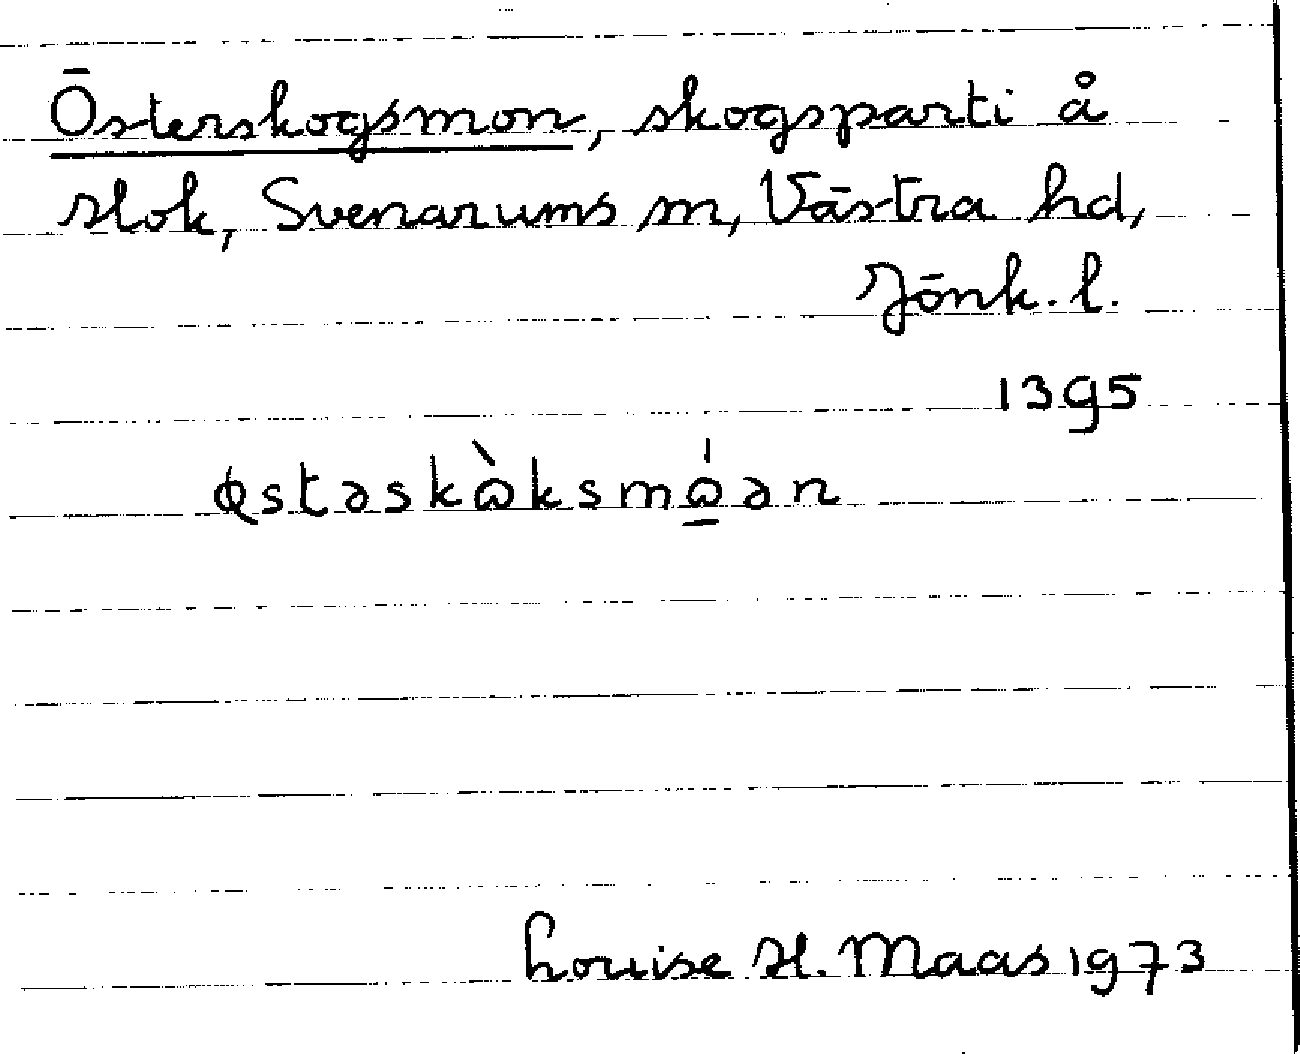 Österskogsmon, skogsparti å
Hok, Svenarums sn, Västra hd,
Jönk. l.
1395
Louise H. Maas 1973